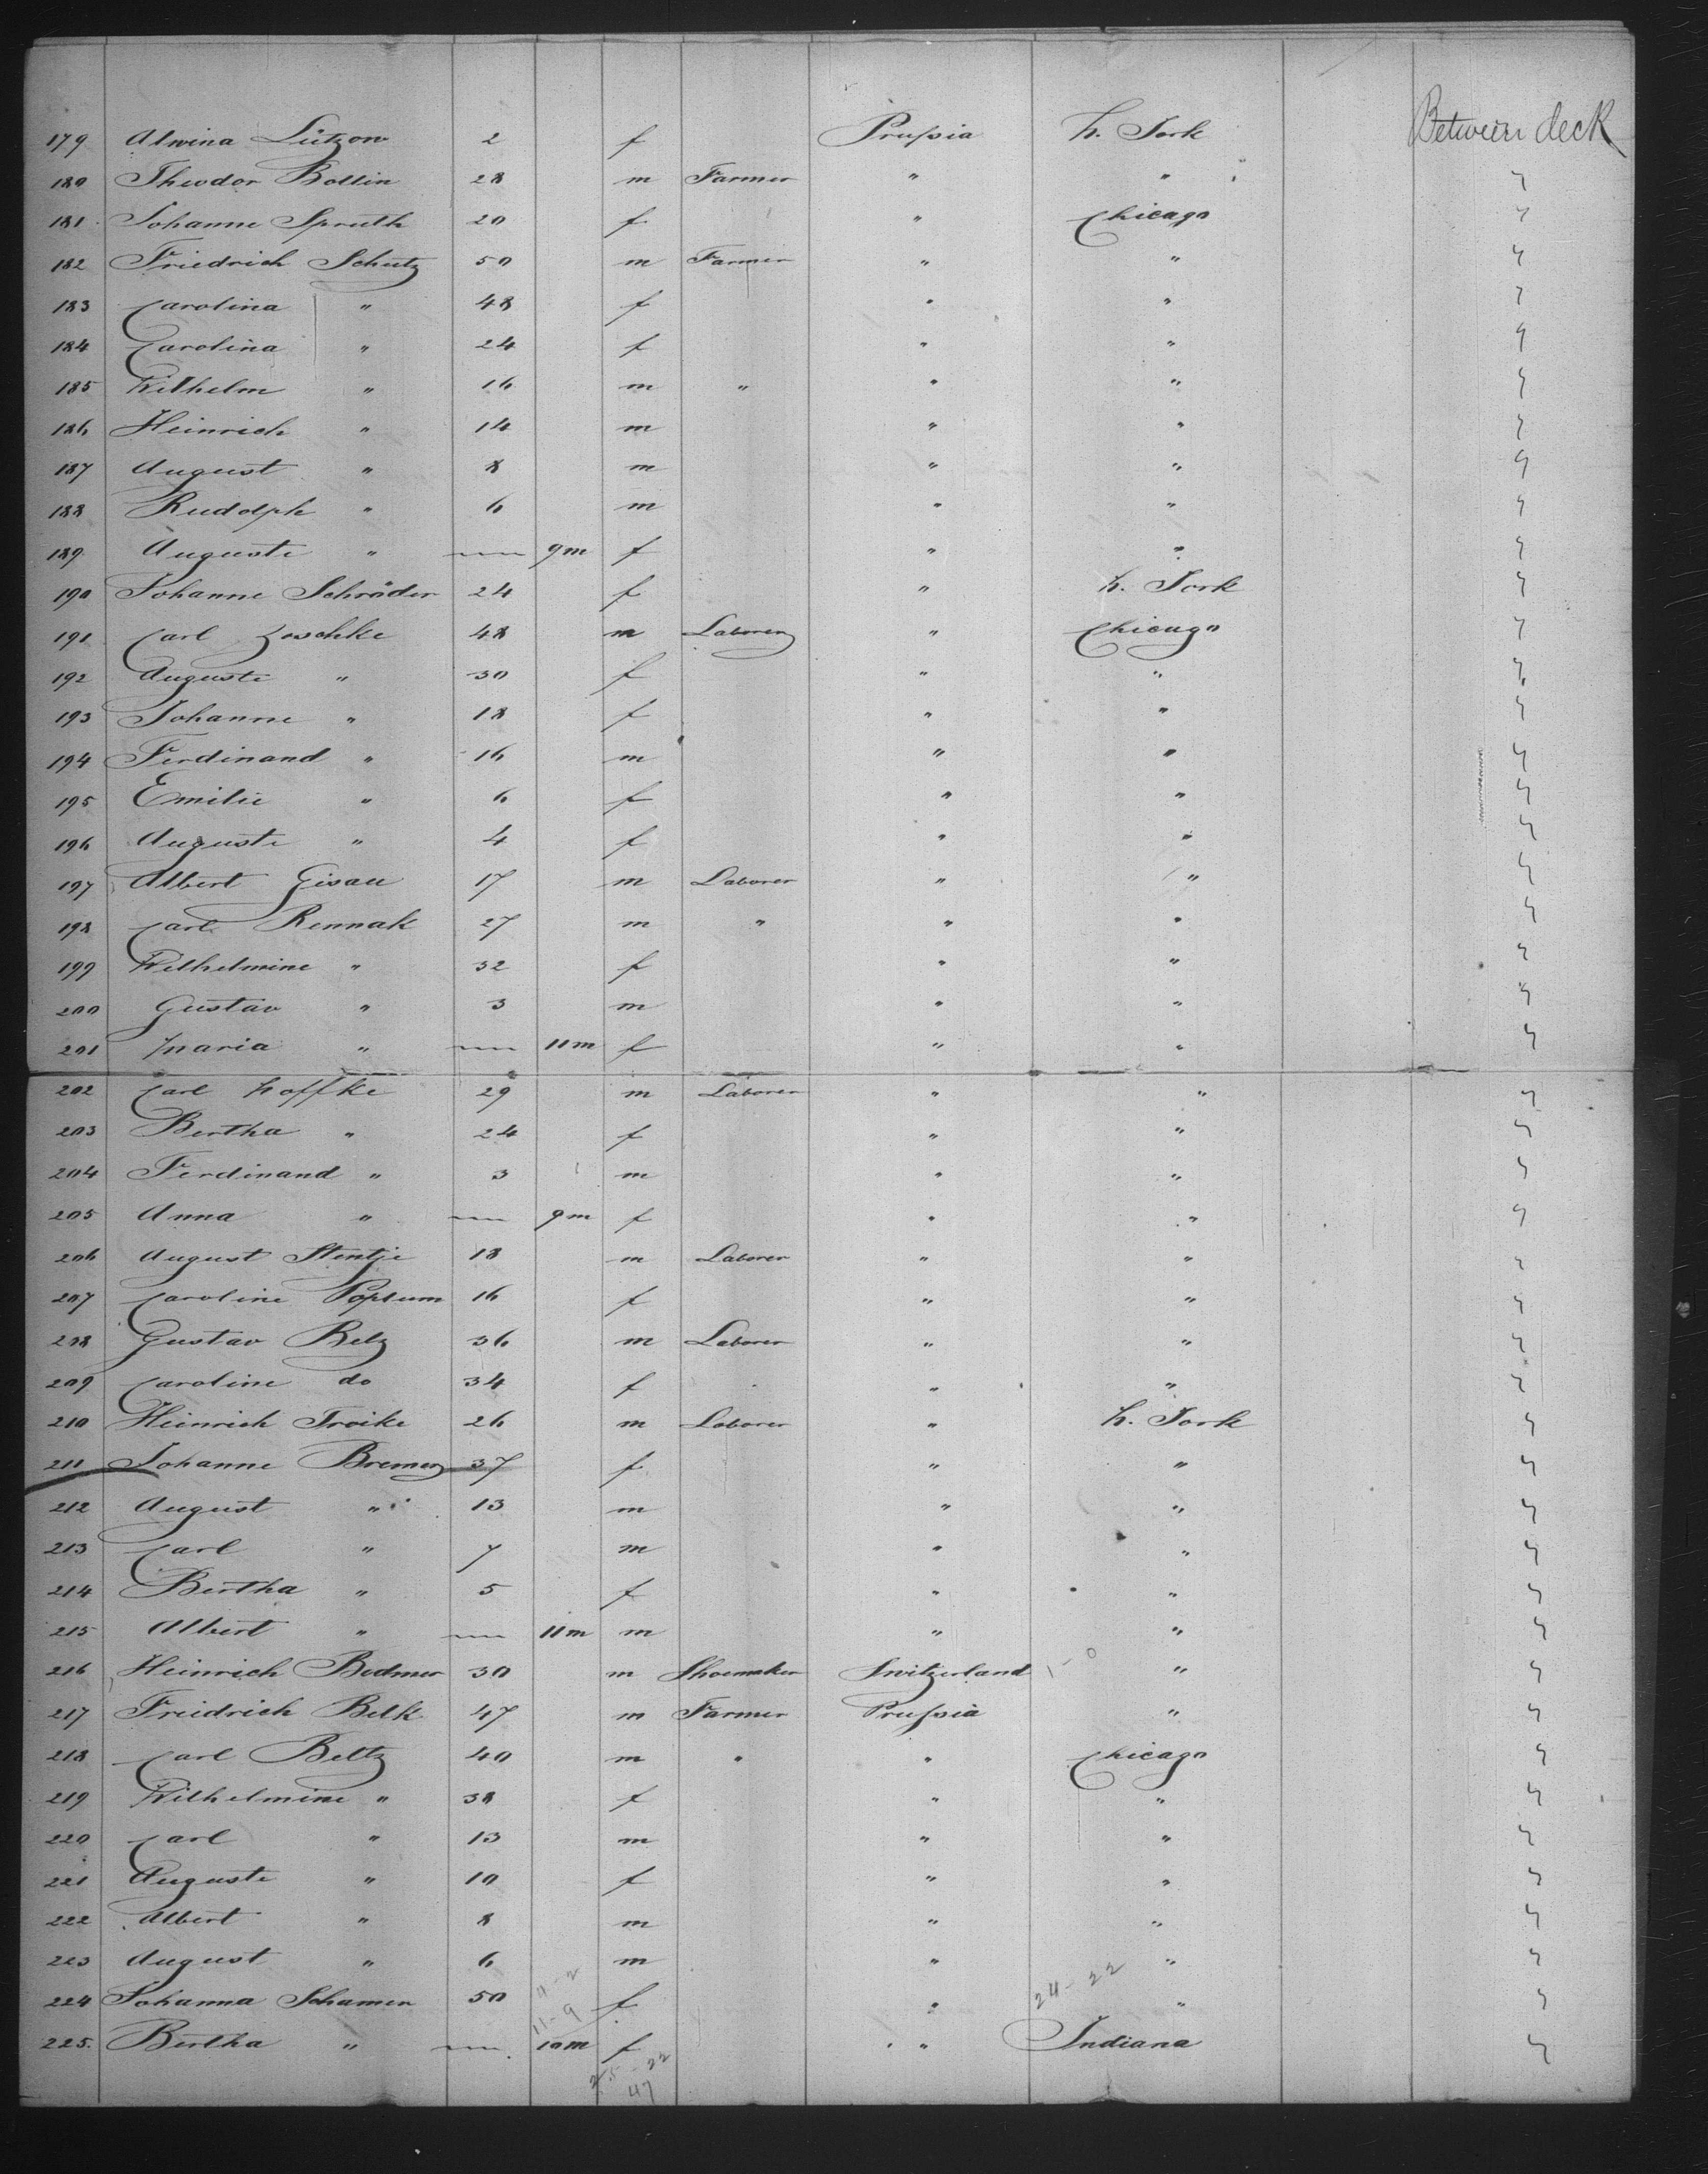 179 Alwina Lützow 2 f Prußia N. York Between deck
180 Theodor Bollin 28 m Farmer " " "
181 Johanne Spruth 20 f " Chicago "
182 Friedrich Schutz 50 m Farmer " " "
183 Carolina " 48 f " " "
184 Carolina " 24 f " " "
185 Wilhelm " 16 m " " " "
186 Heinrich " 14 m " " "
187 August " 8 m " " "
188 Rudolph " 6 m " " "
189 Auguste " — 9m f " " "
190 Johanne Schröder 24 f " N. York "
191 Carl Zoschke 48 m Laborer " Chicago "
192 Auguste " 30 f " " "
193 Johanne " 18 f " " "
194 Ferdinand " 16 m " " "
195 Emilie " 6 f " " "
196 Auguste " 4 f " " "
197 Albert Gisau 17 m Laborer " " "
198 Carl Rennak 27 m " " " "
199 Wilhelmine " 32 f " " "
200 Gustav " 3 m " " "
201 Maria " — 11m f " " "
202 Carl Noffke 29 m Laborer " " "
203 Bertha " 24 f " " "
204 Ferdinand " 3 m " " "
205 Anna " — 9m f " " "
206 August Stentje 18 m Laborer " " "
207 Caroline Popsum 16 f " " "
208 Gustav Belz 36 m Laborer " " "
209 Caroline do 34 f " " "
210 Heinrich Troike 26 m Laborer " N. York "
211 Johanne Bremer 37 f " " "
212 August " 13 m " " "
213 Carl " 7 m " " "
214 Bertha " 5 f " " "
215 Albert " — 11m m " " "
216 Heinrich Bodmer 30 m Shoemaker Switzerland 1-0 " "
217 Friedrich Belk 47 m Farmer Prußia " "
218 Carl Beltz 40 m " " Chicago "
219 Wilhelmine " 38 f " " "
220 Carl " 13 m " " "
221 Auguste " 10 f " " "
222 Albert " 8 m " " "
223 August " 6 m " " "
224 Johanna Schamen 50 11-2 f " 24-22 " "
11-9
225. Bertha " — 10m f " Indiana "
25-22
47